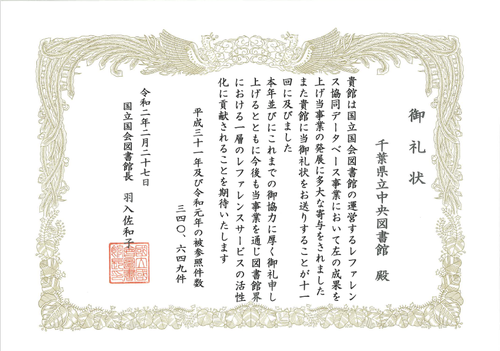 御礼状
千葉県立中央図書館 殿
貴館は国立国会図書館の運営するレファレン
ス協同データベース事業において左の成果を
上げ当事業の発展に多大な寄与をされました
また貴館に当御礼状をお送りすることが十一
回に及びました
本年並びにこれまでの御協力に厚く御礼申し
上げるとともに今後も当事業を通じ図書館界
における一層のレファレンスサービスの活性
化に貢献されることを期待いたします
平成三十一年及び令和元年の被参照件数
三四〇、六四九件
令和二年二月二十七日
国立国会図書館長 羽入佐和子